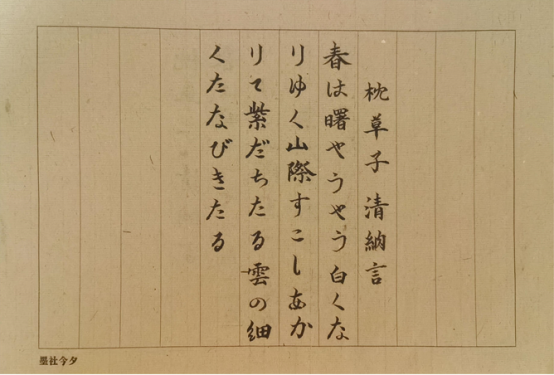 枕草子 清納言
春は曙やうやう白くな
りゆく山際すこしあか
りて紫だちたる雲の細
くたなびきたる
墨社今夕